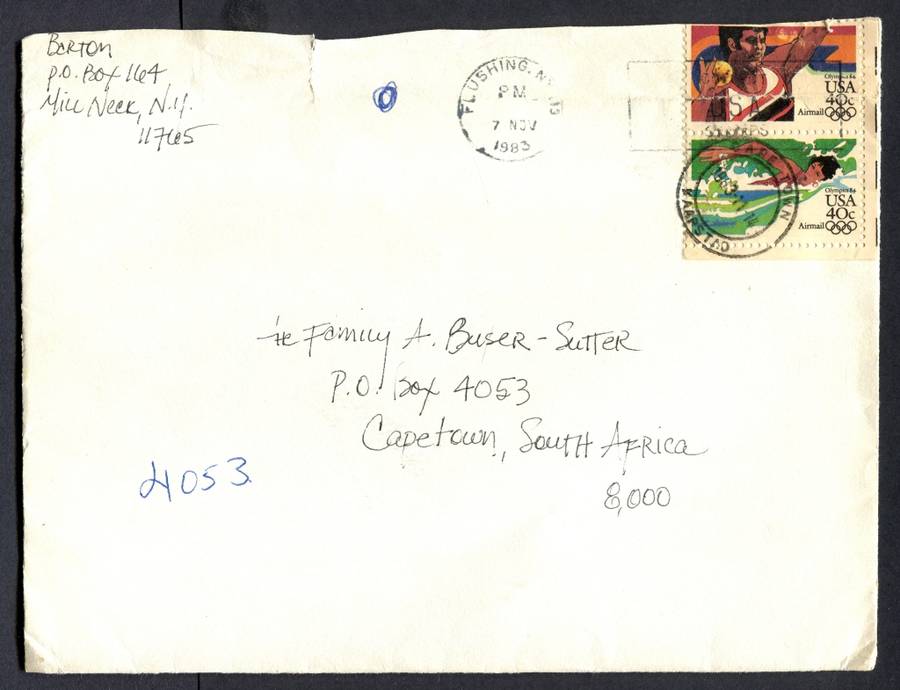 Barton
P.O. Box 164
Mill Neck, N.Y.
11765
FLUSHING, N.Y.
PM
7 NOV
1983
USA
Olympics 84
USA
40c
Airmail
Olympics 84
USA
40c
Airmail
TOWN
KAAPSTAD
The Family A. Buser-Sutter
P.O. Box 4053
Capetown, South Africa
8,000
4053